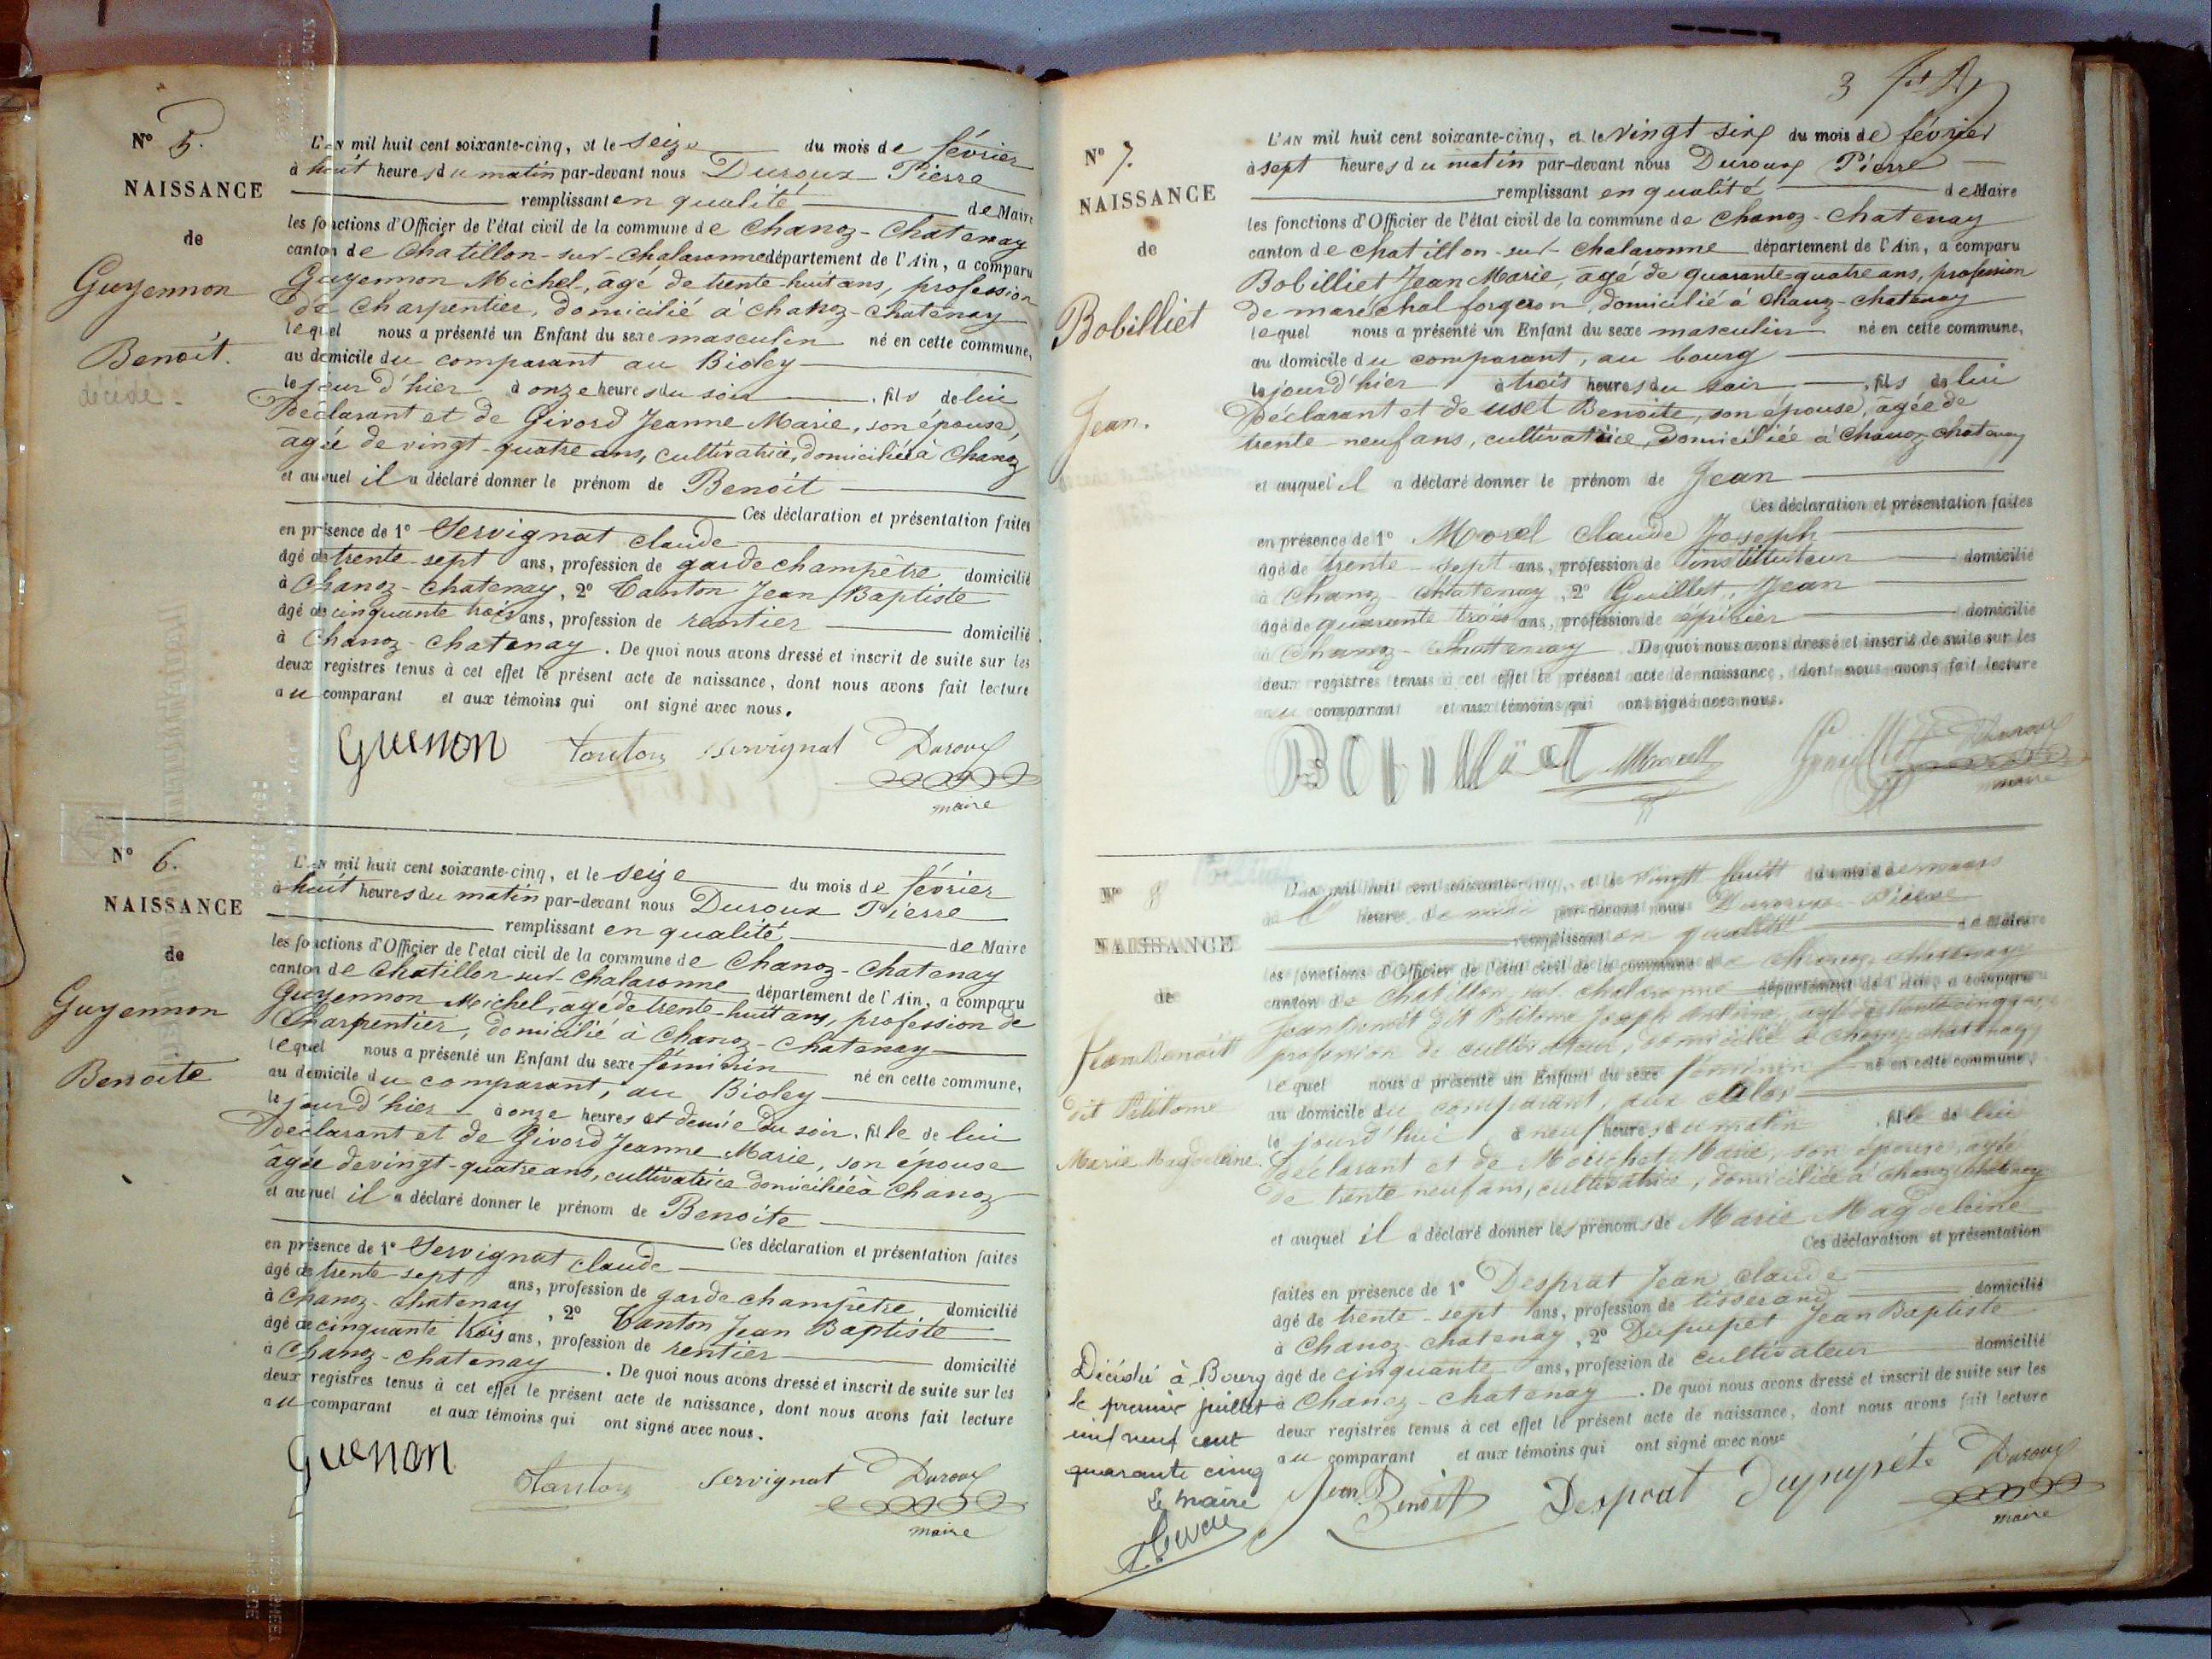 Nº 5.
NAISSANCE
de
Guyennon
Benoit.
décédé
L'AN mil huit cent soixante-cinq, et le seize du mois de février
à huit heures du matin par-devant nous Duroux Pierre
remplissant en qualité de Maire
les fonctions d'Officier de l'état civil de la commune de Chanoz-Chatenay
canton de Chatillon-sur-Chalaronne département de l'Ain, a comparu
Guyennon Michel, âgé de trente-huit ans, profession
de Charpentier, domicilié à Chanoz-Chatenay
lequel nous a présenté un Enfant du sexe masculin né en cette commune,
au domicile du comparant au Bioley
le jour d'hier à onze heures du soir, fils de lui
Déclarant et de Givord Jeanne Marie, son épouse,
âgée de vingt-quatre ans, cultivatrice, domiciliée à Chanoz
et auquel il a déclaré donner le prénom de Benoit
Ces déclaration et présentation faites
en présence de 1º Servignat Claude
âgé de trente-sept ans, profession de garde champêtre domicilié
à Chanoz-Chatenay, 2º Tanton Jean Baptiste
âgé de cinquante trois ans, profession de rentier domicilié
à Chanoz-Chatenay. De quoi nous avons dressé et inscrit de suite sur les
deux registres tenus à cet effet le présent acte de naissance, dont nous avons fait lecture
au comparant et aux témoins qui ont signé avec nous.
Guenon Tanton Servignat Duroux
maire
Nº 6.
NAISSANCE
de
Guyennon
Benoite
L'AN mil huit cent soixante-cinq, et le seize du mois de février
à huit heures du matin par-devant nous Duroux Pierre
remplissant en qualité de Maire
les fonctions d'Officier de l'état civil de la commune de Chanoz-Chatenay
canton de Chatillon-sur-Chalaronne département de l'Ain, a comparu
Guyennon Michel, âgé de trente-huit ans, profession de
Charpentier, domicilié à Chanoz-Chatenay
lequel nous a présenté un Enfant du sexe féminin né en cette commune,
au domicile du comparant, au Bioley
le jour d'hier à onze heures et demie du soir, fille de lui
Déclarant et de Givord Jeanne Marie, son épouse
âgée de vingt-quatre ans, cultivatrice domiciliée à Chanoz
et auquel il a déclaré donner le prénom de Benoite
Ces déclaration et présentation faites
en présence de 1º Servignat Claude
âgé de trente-sept ans, profession de garde champêtre domicilié
à Chanoz-Chatenay, 2º Tanton Jean Baptiste
âgé de cinquante trois ans, profession de rentier domicilié
à Chanoz-Chatenay. De quoi nous avons dressé et inscrit de suite sur les
deux registres tenus à cet effet le présent acte de naissance, dont nous avons fait lecture
au comparant et aux témoins qui ont signé avec nous.
Guenon Tanton Servignat Duroux
maire
3
Nº 7.
NAISSANCE
de
Bobilliet
Jean.
L'AN mil huit cent soixante-cinq, et le vingt six du mois de février
à sept heures du matin par-devant nous Duroux Pierre
remplissant en qualité de Maire
les fonctions d'Officier de l'état civil de la commune de Chanoz-Chatenay
canton de Chatillon-sur-Chalaronne département de l'Ain, a comparu
Bobilliet Jean Marie, âgé de quarante-quatre ans, profession
de maréchal forgeron, domicilié à Chanoz-Chatenay
lequel nous a présenté un Enfant du sexe masculin né en cette commune,
au domicile du comparant, au bourg
le jour d'hier à trois heures du soir, fils de lui
Déclarant et de uset Benoite, son épouse, âgée de
trente-neuf ans, cultivatrice, domiciliée à Chanoz-Chatenay
et auquel il a déclaré donner le prénom de Jean
Ces déclaration et présentation faites
en présence de 1º Morel Claude Joseph
âgé de trente-sept ans, profession de instituteur domicilié
à Chanoz-Chatenay, 2º Guillet Jean
âgé de quarante trois ans, profession de épicier domicilié
à Chanoz-Chatenay. De quoi nous avons dressé et inscrit de suite sur les
deux registres tenus à cet effet le présent acte de naissance, dont nous avons fait lecture
au comparant et aux témoins qui ont signé avec nous.
Morel Guillet Duroux
maire
Nº 8
NAISSANCE
de
Jean Benoit
dit Petitome
Marie Magdeleine.
L'AN mil huit cent soixante-cinq, et le vingt huit du mois de mars
à heure de midi par-devant nous Duroux Pierre
remplissant en qualité de Maire
les fonctions d'Officier de l'état civil de la commune de Chanoz-Chatenay
canton de Chatillon-sur-Chalaronne département de l'Ain, a comparu
Jean Benoit dit Petitome Joseph Antoine, âgé de trente cinq ans,
profession de cultivateur, domicilié à Chanoz-Chatenay
lequel nous a présenté un Enfant du sexe féminin né en cette commune,
au domicile du comparant, aux
le jourd'hui à neuf heures du matin, fille de lui
Déclarant et de Marie, son épouse, âgée
de trente neuf ans, cultivatrice, domiciliée à Chanoz-Chatenay
et auquel il a déclaré donner les prénoms de Marie Magdeleine
Ces déclaration et présentation
faites en présence de 1º Desprat Jean Claude
âgé de trente-sept ans, profession de tisserand domicilié
à Chanoz-Chatenay, 2º Dupupet Jean Baptiste
âgé de cinquante ans, profession de cultivateur domicilié
à Chanoz-Chatenay. De quoi nous avons dressé et inscrit de suite sur les
deux registres tenus à cet effet le présent acte de naissance, dont nous avons fait lecture
au comparant et aux témoins qui ont signé avec nous
Jean Benoit Desprat Dupupét Duroux
maire
Décédé à Bourg
le premier juillet
mil neuf cent
quarante cinq
Le maire